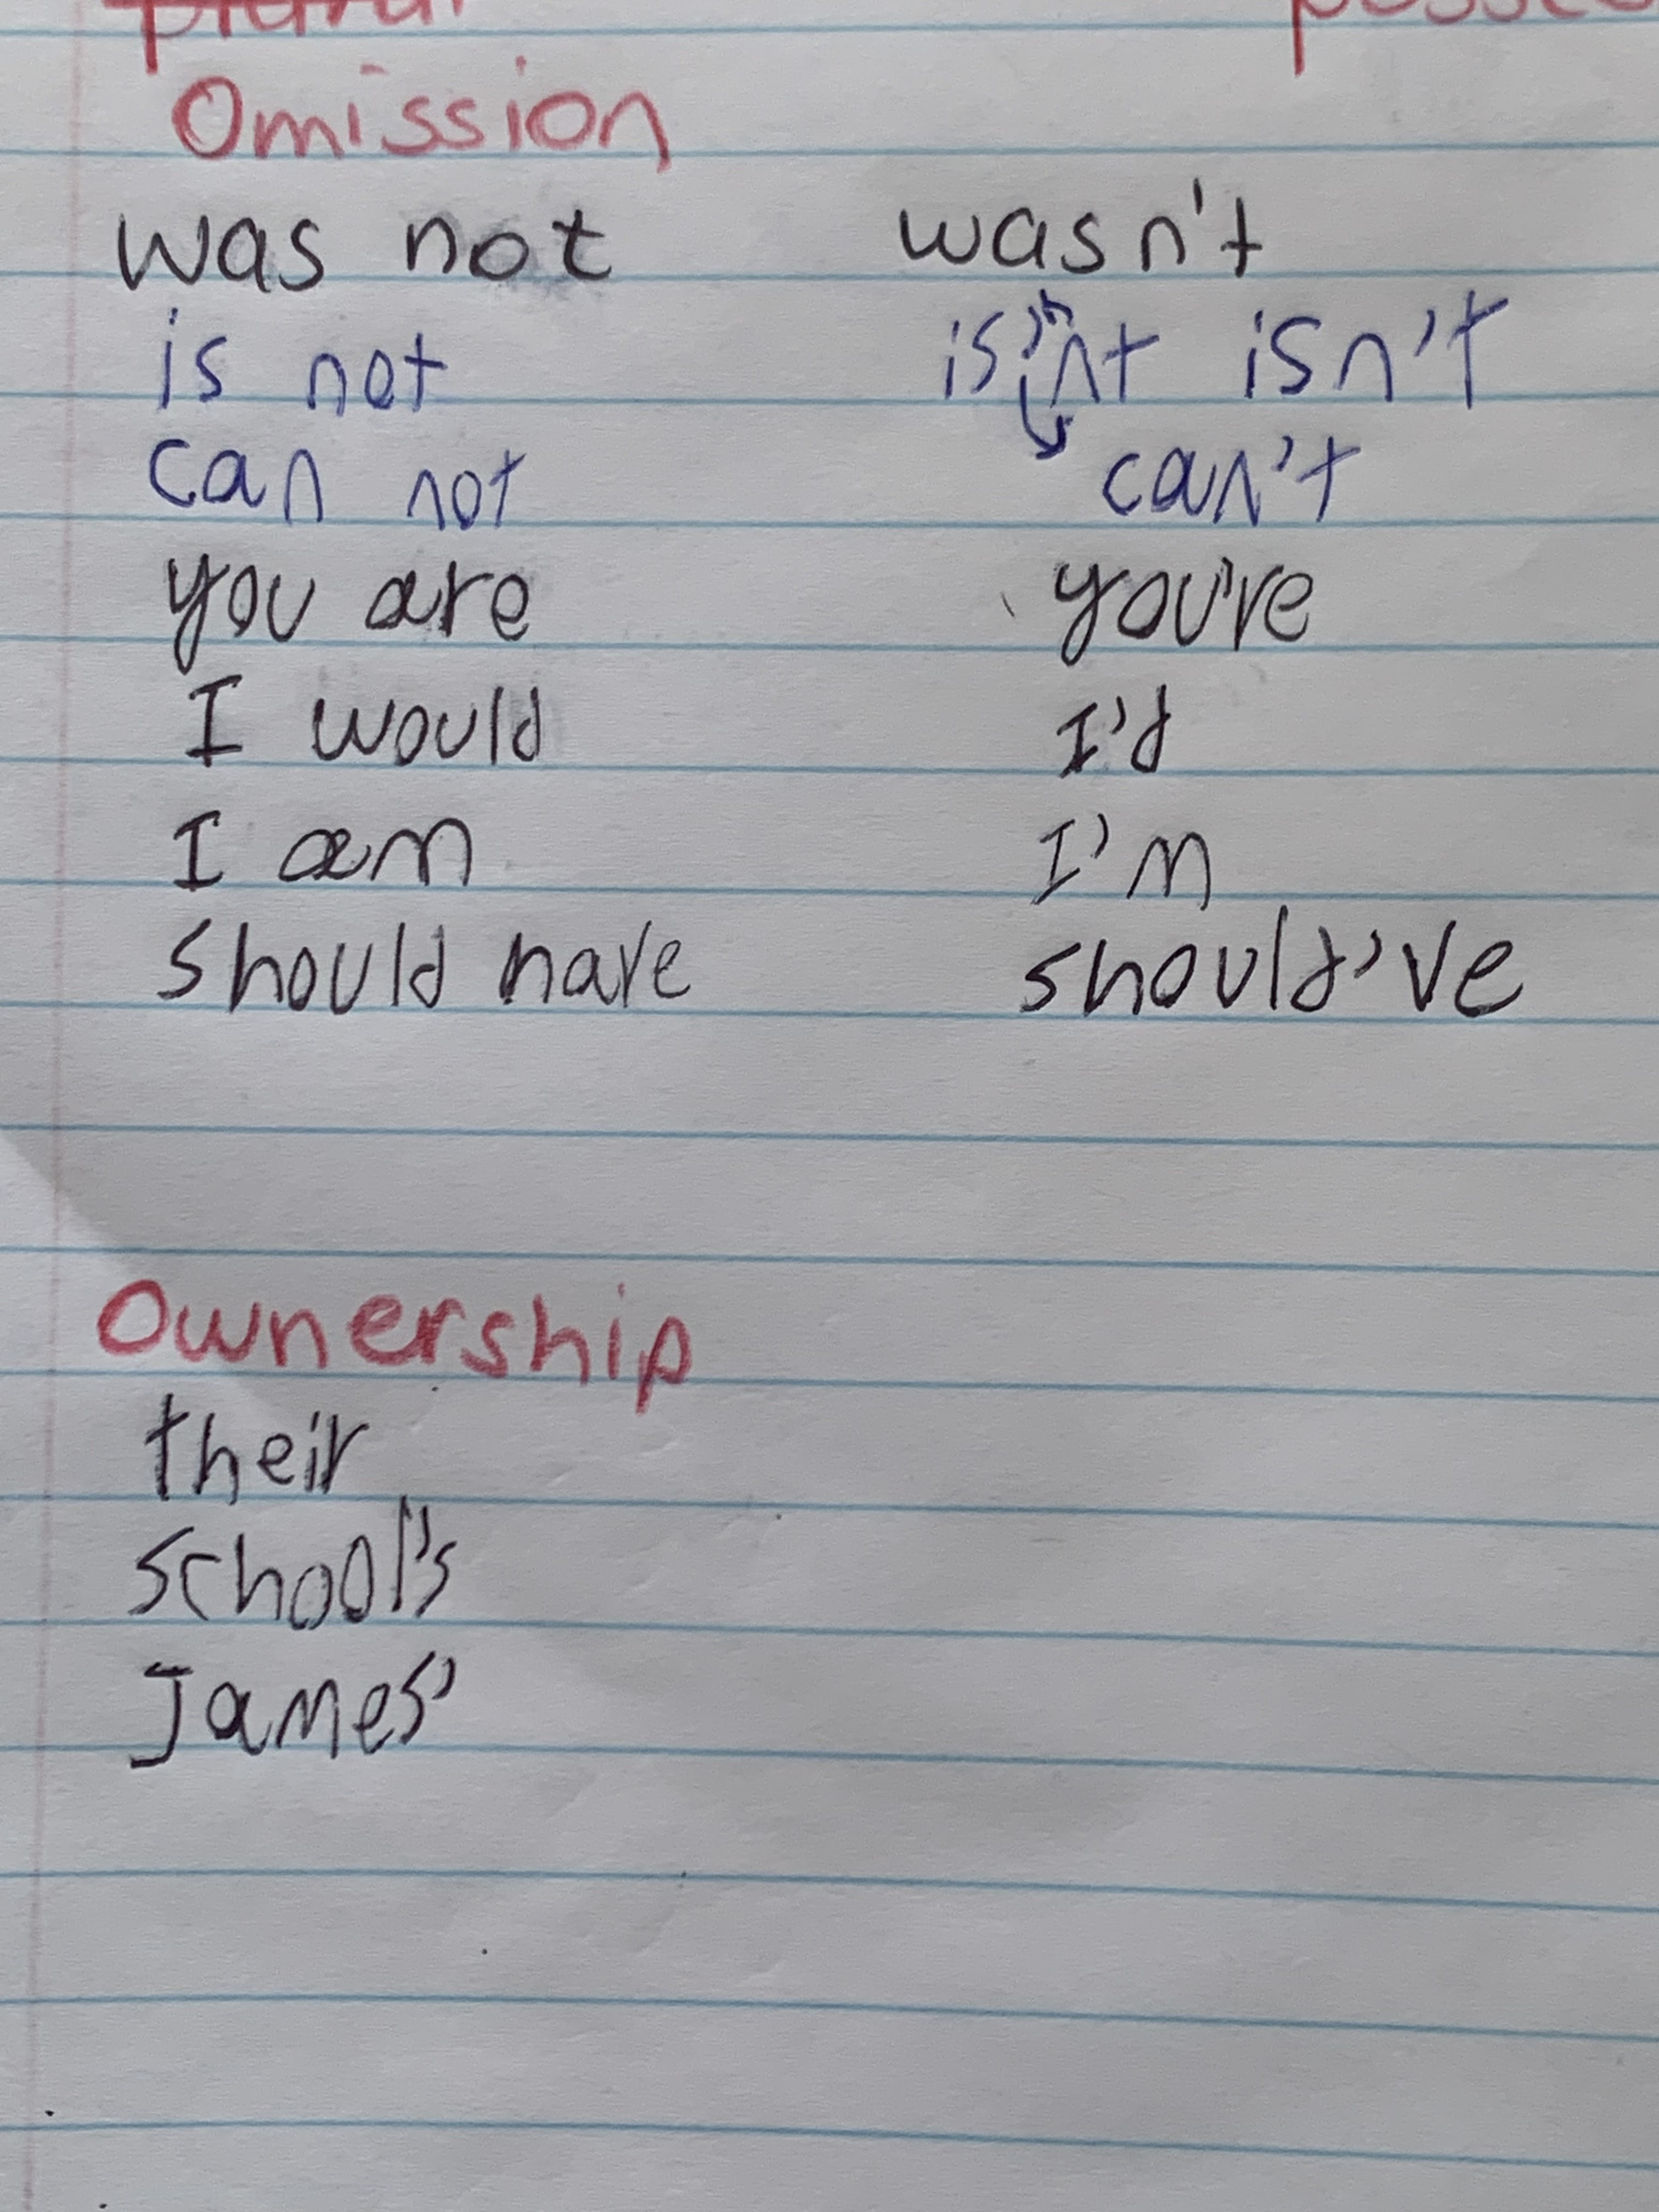 Omission
was not wasn't
is not is'nt isn't
can not can't
you are you're
I would I'd
I am I'm
should have should've
Ownership
their
school's
James'